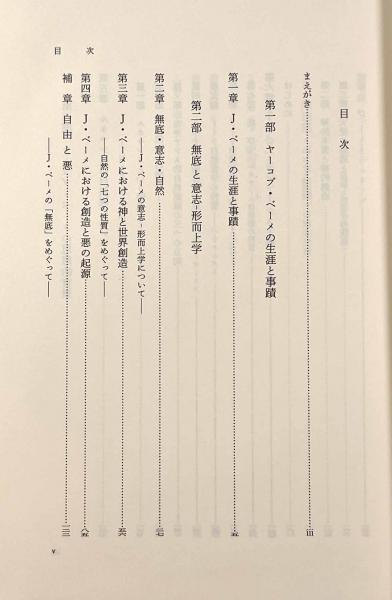 目　次
目　次
まえがき……………iii
第一部　ヤーコプ・ベーメの生涯と事蹟
第一章　J・ベーメの生涯と事蹟……………五
第二部　無底と意志‐形而上学
第二章　無底・意志・自然……………
――J・ベーメの意志‐形而上学について――
第三章　J・ベーメにおける神と世界創造……………
――自然の「七つの性質」をめぐって――
第四章　J・ベーメにおける創造と悪の起源……………八五
補章　自由と悪……………
――J・ベーメの「無底」をめぐって――
v